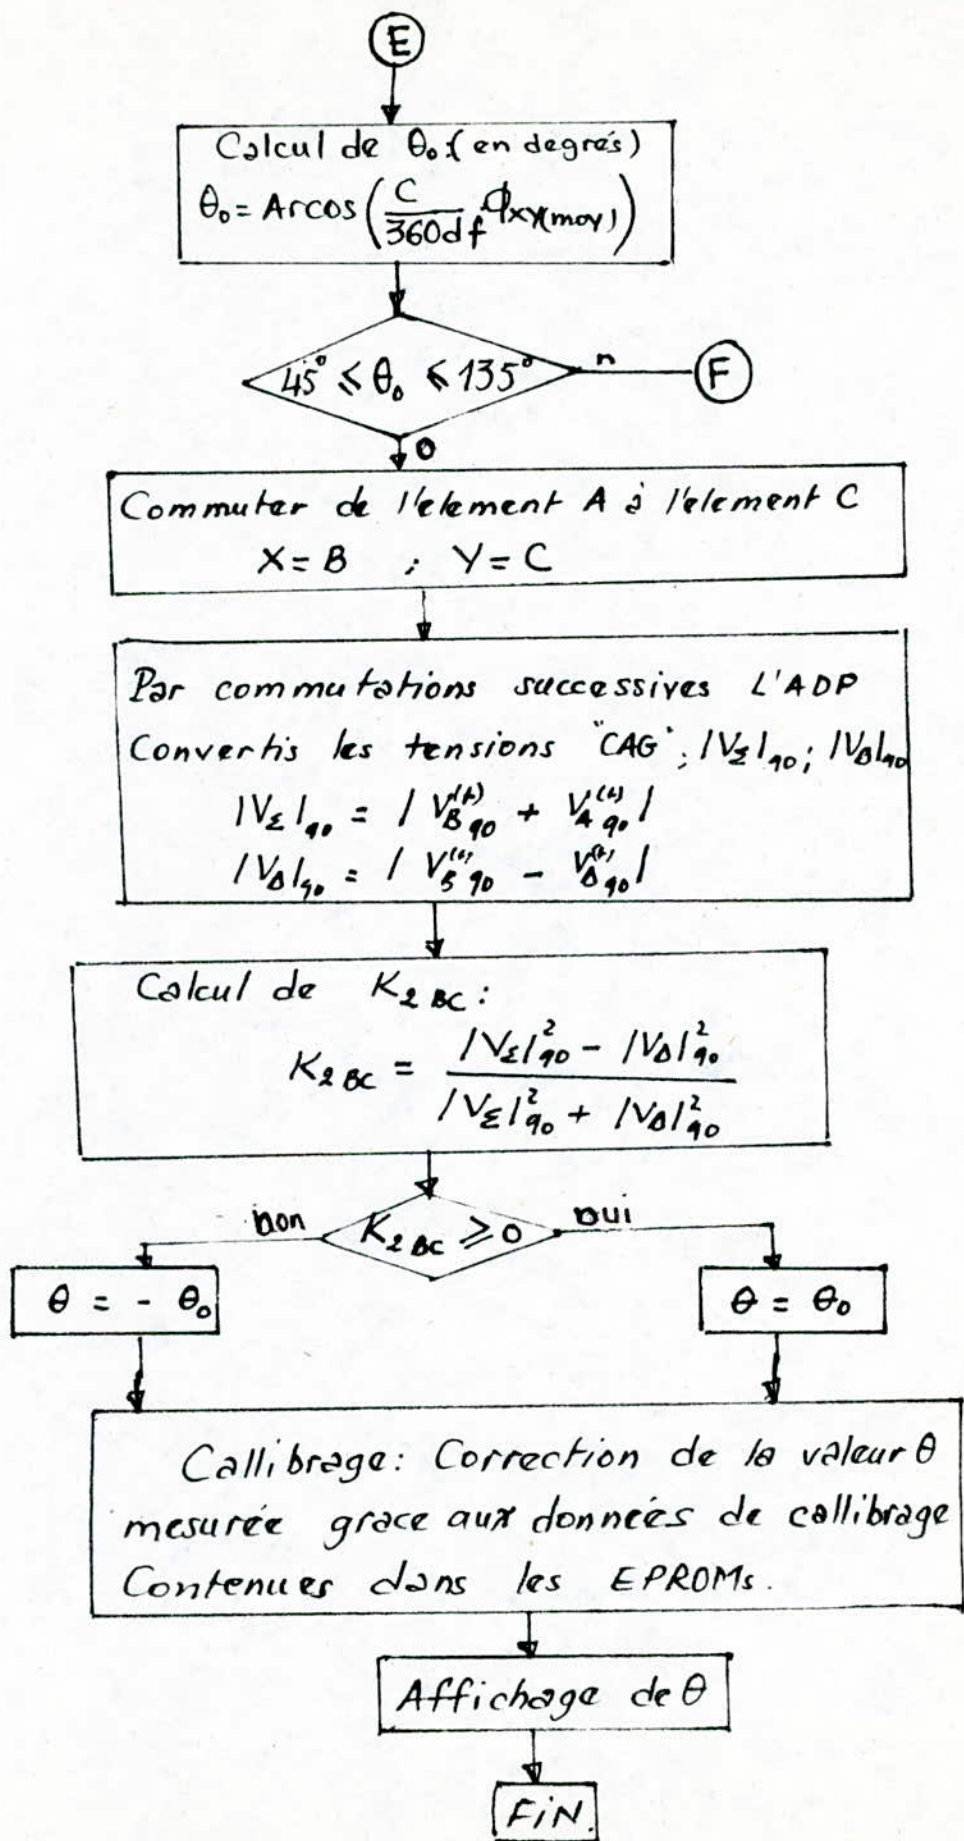 E
Calcul de θ₀ : (en degrés)
θ₀ = Arcos(C/360df · Φxy(moy))
45° ⩽ θ₀ ⩽ 135°
n
F
o
Commuter de l'element A à l'element C
X = B ; Y = C
Par commutations successives L'ADP
Convertis les tensions "CAG" ; |V_Σ|₉₀ ; |V_Δ|₉₀
|V_Σ|₉₀ = | V_B^(t) ₉₀ + V_A^(t) ₉₀ |
|V_Δ|₉₀ = | V_B^(t) ₉₀ - V_A^(t) ₉₀ |
Calcul de K₂ BC :
K₂ BC = (|V_Σ|²₉₀ - |V_Δ|²₉₀) / (|V_Σ|²₉₀ + |V_Δ|²₉₀)
non K₂ BC ⩾ 0 oui
θ = - θ₀ θ = θ₀
Callibrage : Correction de la valeur θ
mesurée grace aux données de callibrage
Contenues dans les EPROMs.
Affichage de θ
FiN.